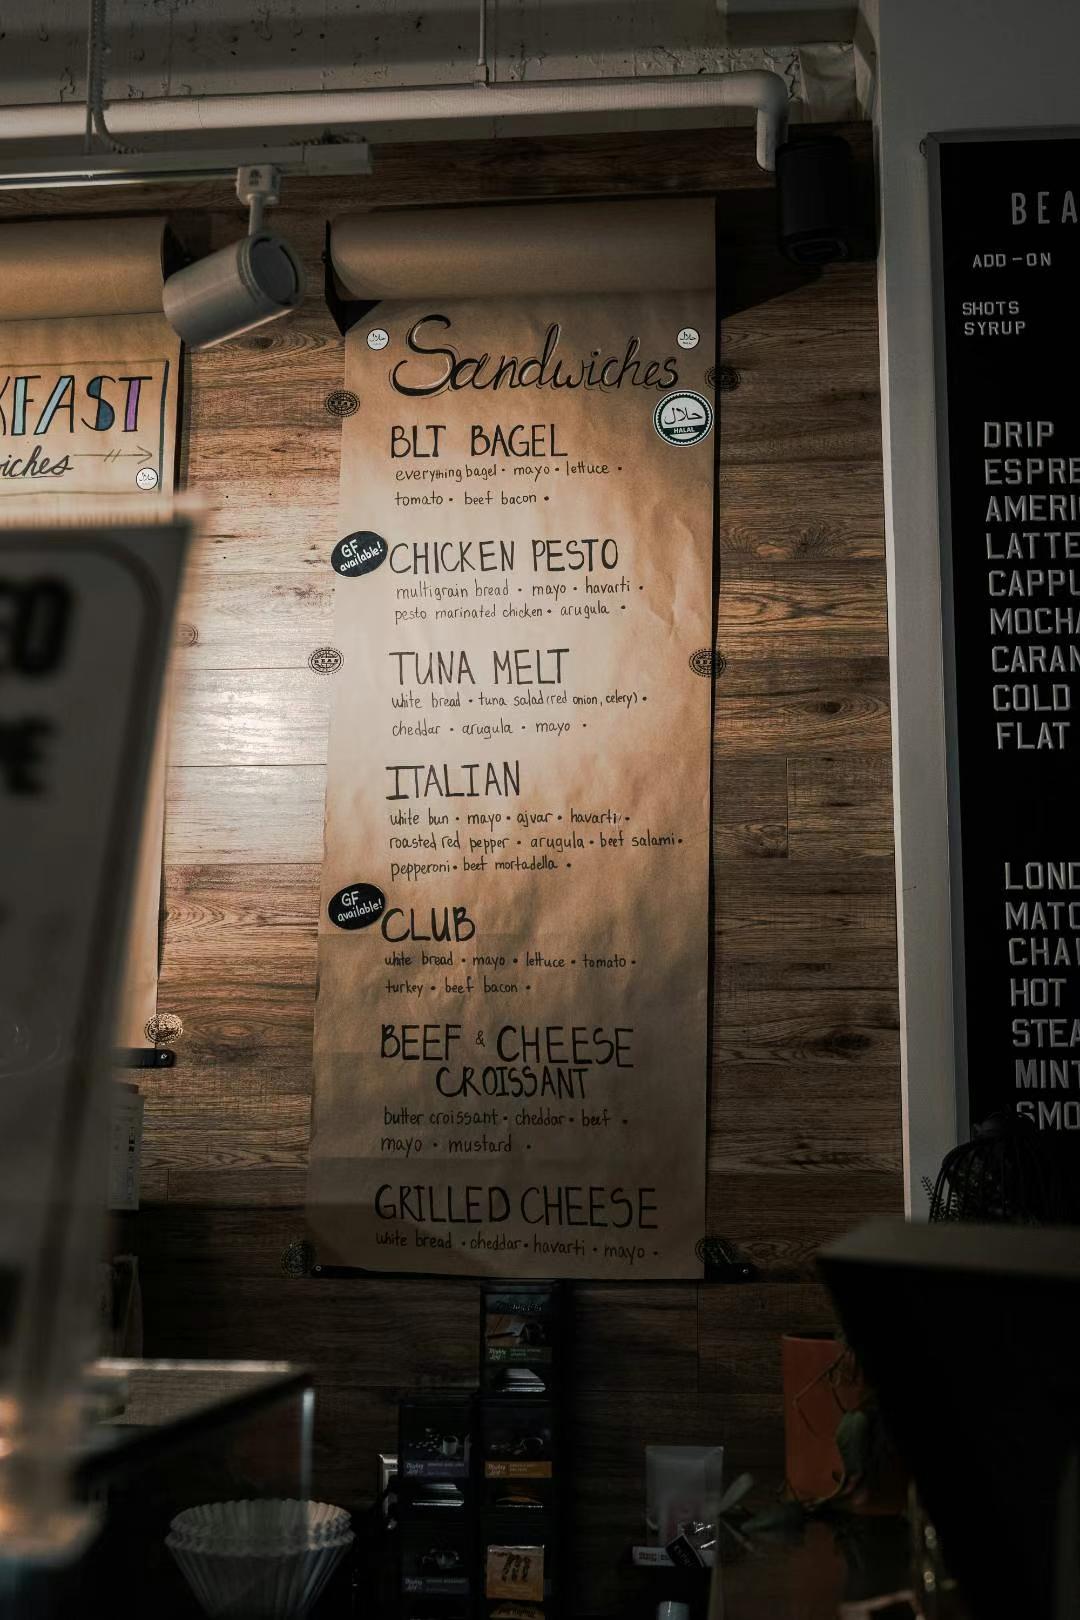 KFAST
iches
Sandwiches
حلال
HALAL
BLT BAGEL
everything bagel • mayo • lettuce •
tomato • beef bacon •
GF
available!
CHICKEN PESTO
multigrain bread • mayo • havarti •
pesto marinated chicken • arugula •
TUNA MELT
white bread • tuna salad (red onion, celery) •
cheddar • arugula • mayo •
ITALIAN
white bun • mayo • ajvar • havarti •
roasted red pepper • arugula • beef salami •
pepperoni • beef mortadella •
GF
available!
CLUB
white bread • mayo • lettuce • tomato •
turkey • beef bacon •
BEEF & CHEESE
CROISSANT
butter croissant • cheddar • beef •
mayo • mustard •
GRILLED CHEESE
white bread • cheddar • havarti • mayo •
BEA
ADD-ON
SHOTS
SYRUP
DRIP
ESPRE
AMERI
LATTE
CAPPU
MOCHA
CARAM
COLD
FLAT
LOND
MATC
CHAI
HOT
STEA
MINT
SMO